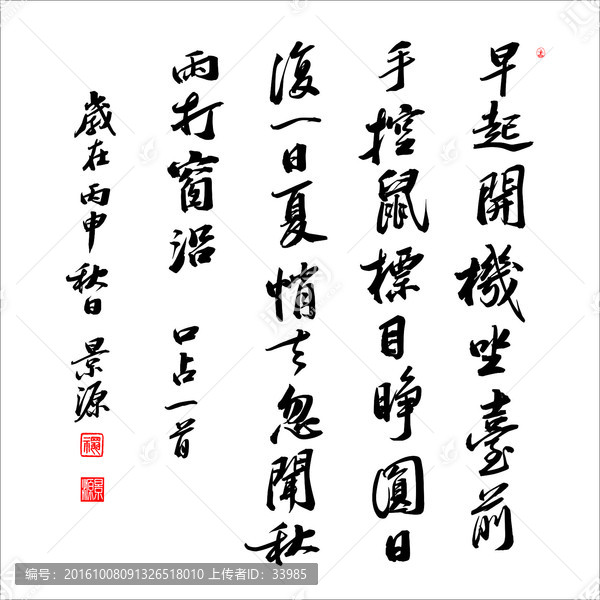 早起開機坐臺前
手控鼠標目睁圓日
復一日夏悄去忽聞秋
雨打窗沿 口占一首
歲在丙申秋日 景源
编号：20161008091326518010 上传者ID：33985